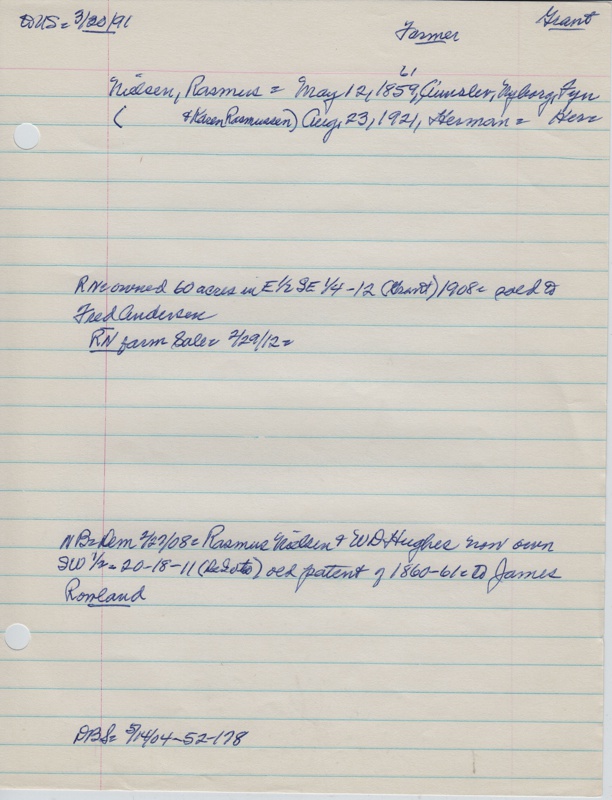 to US = 3/20/91
Farmer
Grant
61
Nielsen, Rasmus = May 12, 1859, Nyborg, Fyn
( + Karen Rasmussen) Aug. 23, 1921, Herman = Her=
RN = owned 60 acres in E 1/2 SE 1/4 - 12 (Grant) 1908 = sold to
Fred Andersen
RN farm Sale = 2/29/12 =
NB = Dem 2/27/08 = Rasmus Nielsen + WD Hughes now own
SW 1/2 = 20-18-11 (DeSoto) old patent of 1860-61 = to James
Rowland
DBS = 5/14/04-52-178